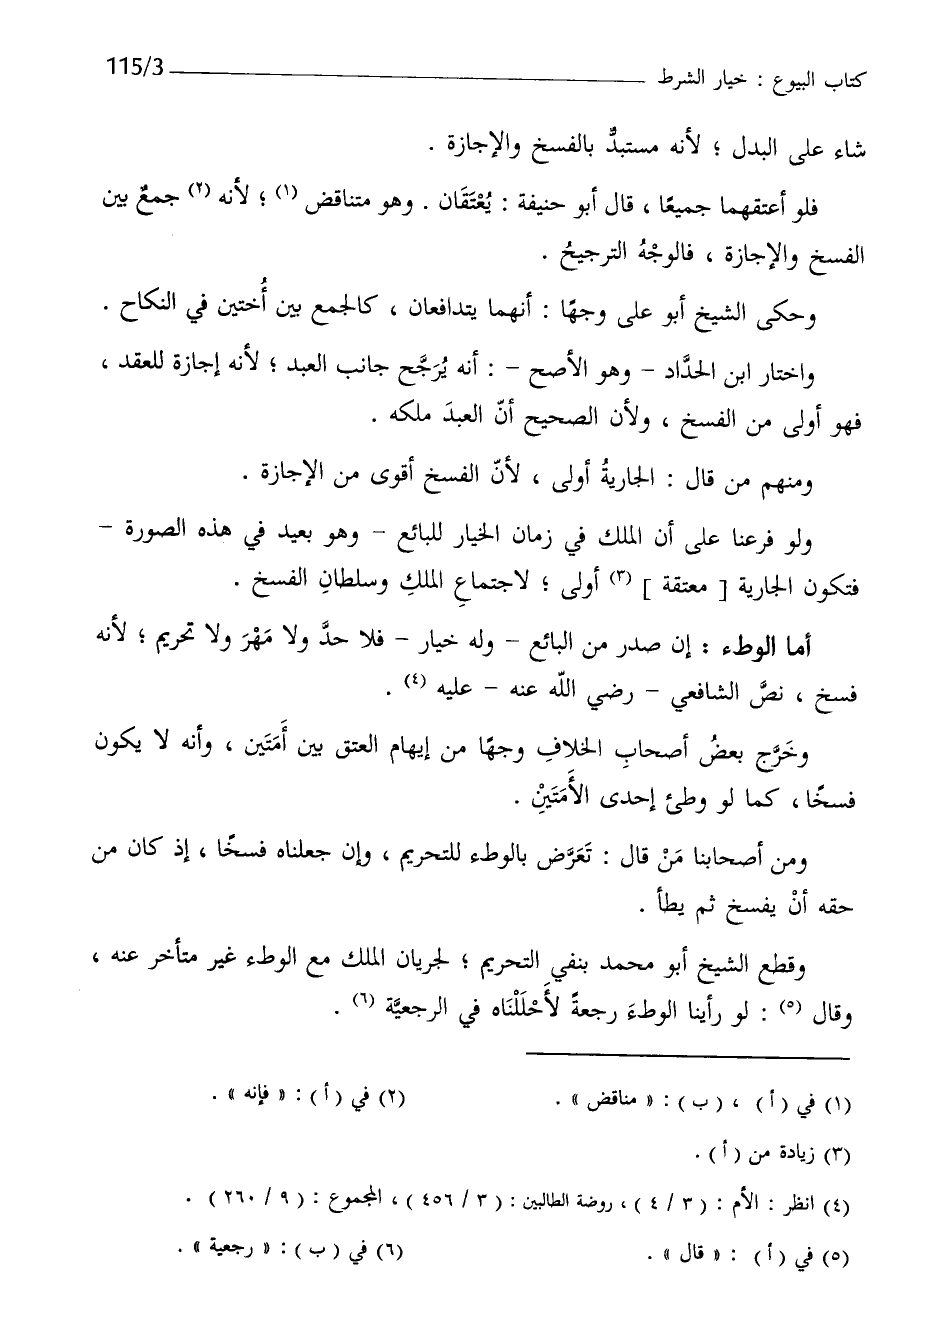 كتاب البيوع : خيار الشرط 115/3
شاء على البدل ؛ لأنه مستبدٌّ بالفسخ والإجازة .
فلو أعتقهما جميعًا ، قال أبو حنيفة : يُعْتَقَان . وهو متناقض (١) ؛ لأنه (٢) جمعٌ بين
الفسخ والإجازة ، فالوجْهُ الترجيحُ .
وحكى الشيخ أبو على وجهًا : أنهما يتدافعان ، كالجمع بين أُختين في النكاح .
واختار ابن الحدَّاد – وهو الأصح – : أنه يُرَجَّح جانب العبد ؛ لأنه إجازة للعقد ،
فهو أولى من الفسخ ، ولأن الصحيح أنّ العبدَ ملكه .
ومنهم من قال : الجاريةُ أولى ، لأنّ الفسخ أقوى من الإجازة .
ولو فرعنا على أن الملك في زمان الخيار للبائع – وهو بعيد في هذه الصورة –
فتكون الجارية [ معتقة ] (٣) أولى ؛ لاجتماعِ الملكِ وسلطانِ الفسخ .
أما الوطء : إن صدر من البائع – وله خيار – فلا حدَّ ولا مَهْرَ ولا تحريم ؛ لأنه
فسخ ، نصَّ الشافعي – رضي اللّه عنه – عليه (٤) .
وخَرَّج بعضُ أصحابِ الخلافِ وجهًا من إبهام العتق بين أَمَتَين ، وأنه لا يكون
فسخًا ، كما لو وطئ إحدى الأَمَتَيْنِ .
ومن أصحابنا مَنْ قال : تَعَرَّض بالوطء للتحريم ، وإن جعلناه فسخًا ، إذ كان من
حقه أنْ يفسخ ثم يطأ .
وقطع الشيخ أبو محمد بنفي التحريم ؛ لجريان الملك مع الوطء غير متأخر عنه ،
وقال (٥) : لو رأينا الوطءَ رجعةً لأَحْلَلْنَاه في الرجعيَّة (٦) .
(١) في ( أ ) ، ( ب ) : « مناقض » . (٢) في ( أ ) : « فإنه » .
(٣) زيادة من ( أ ) .
(٤) انظر : الأم : ( ٣ / ٤ ) ، روضة الطالبين : ( ٣ / ٤٥٦ ) ، المجموع : ( ٩ / ٢٦٠ ) .
(٥) في ( أ ) : « قال » . (٦) في ( ب ) : « رجعية » .